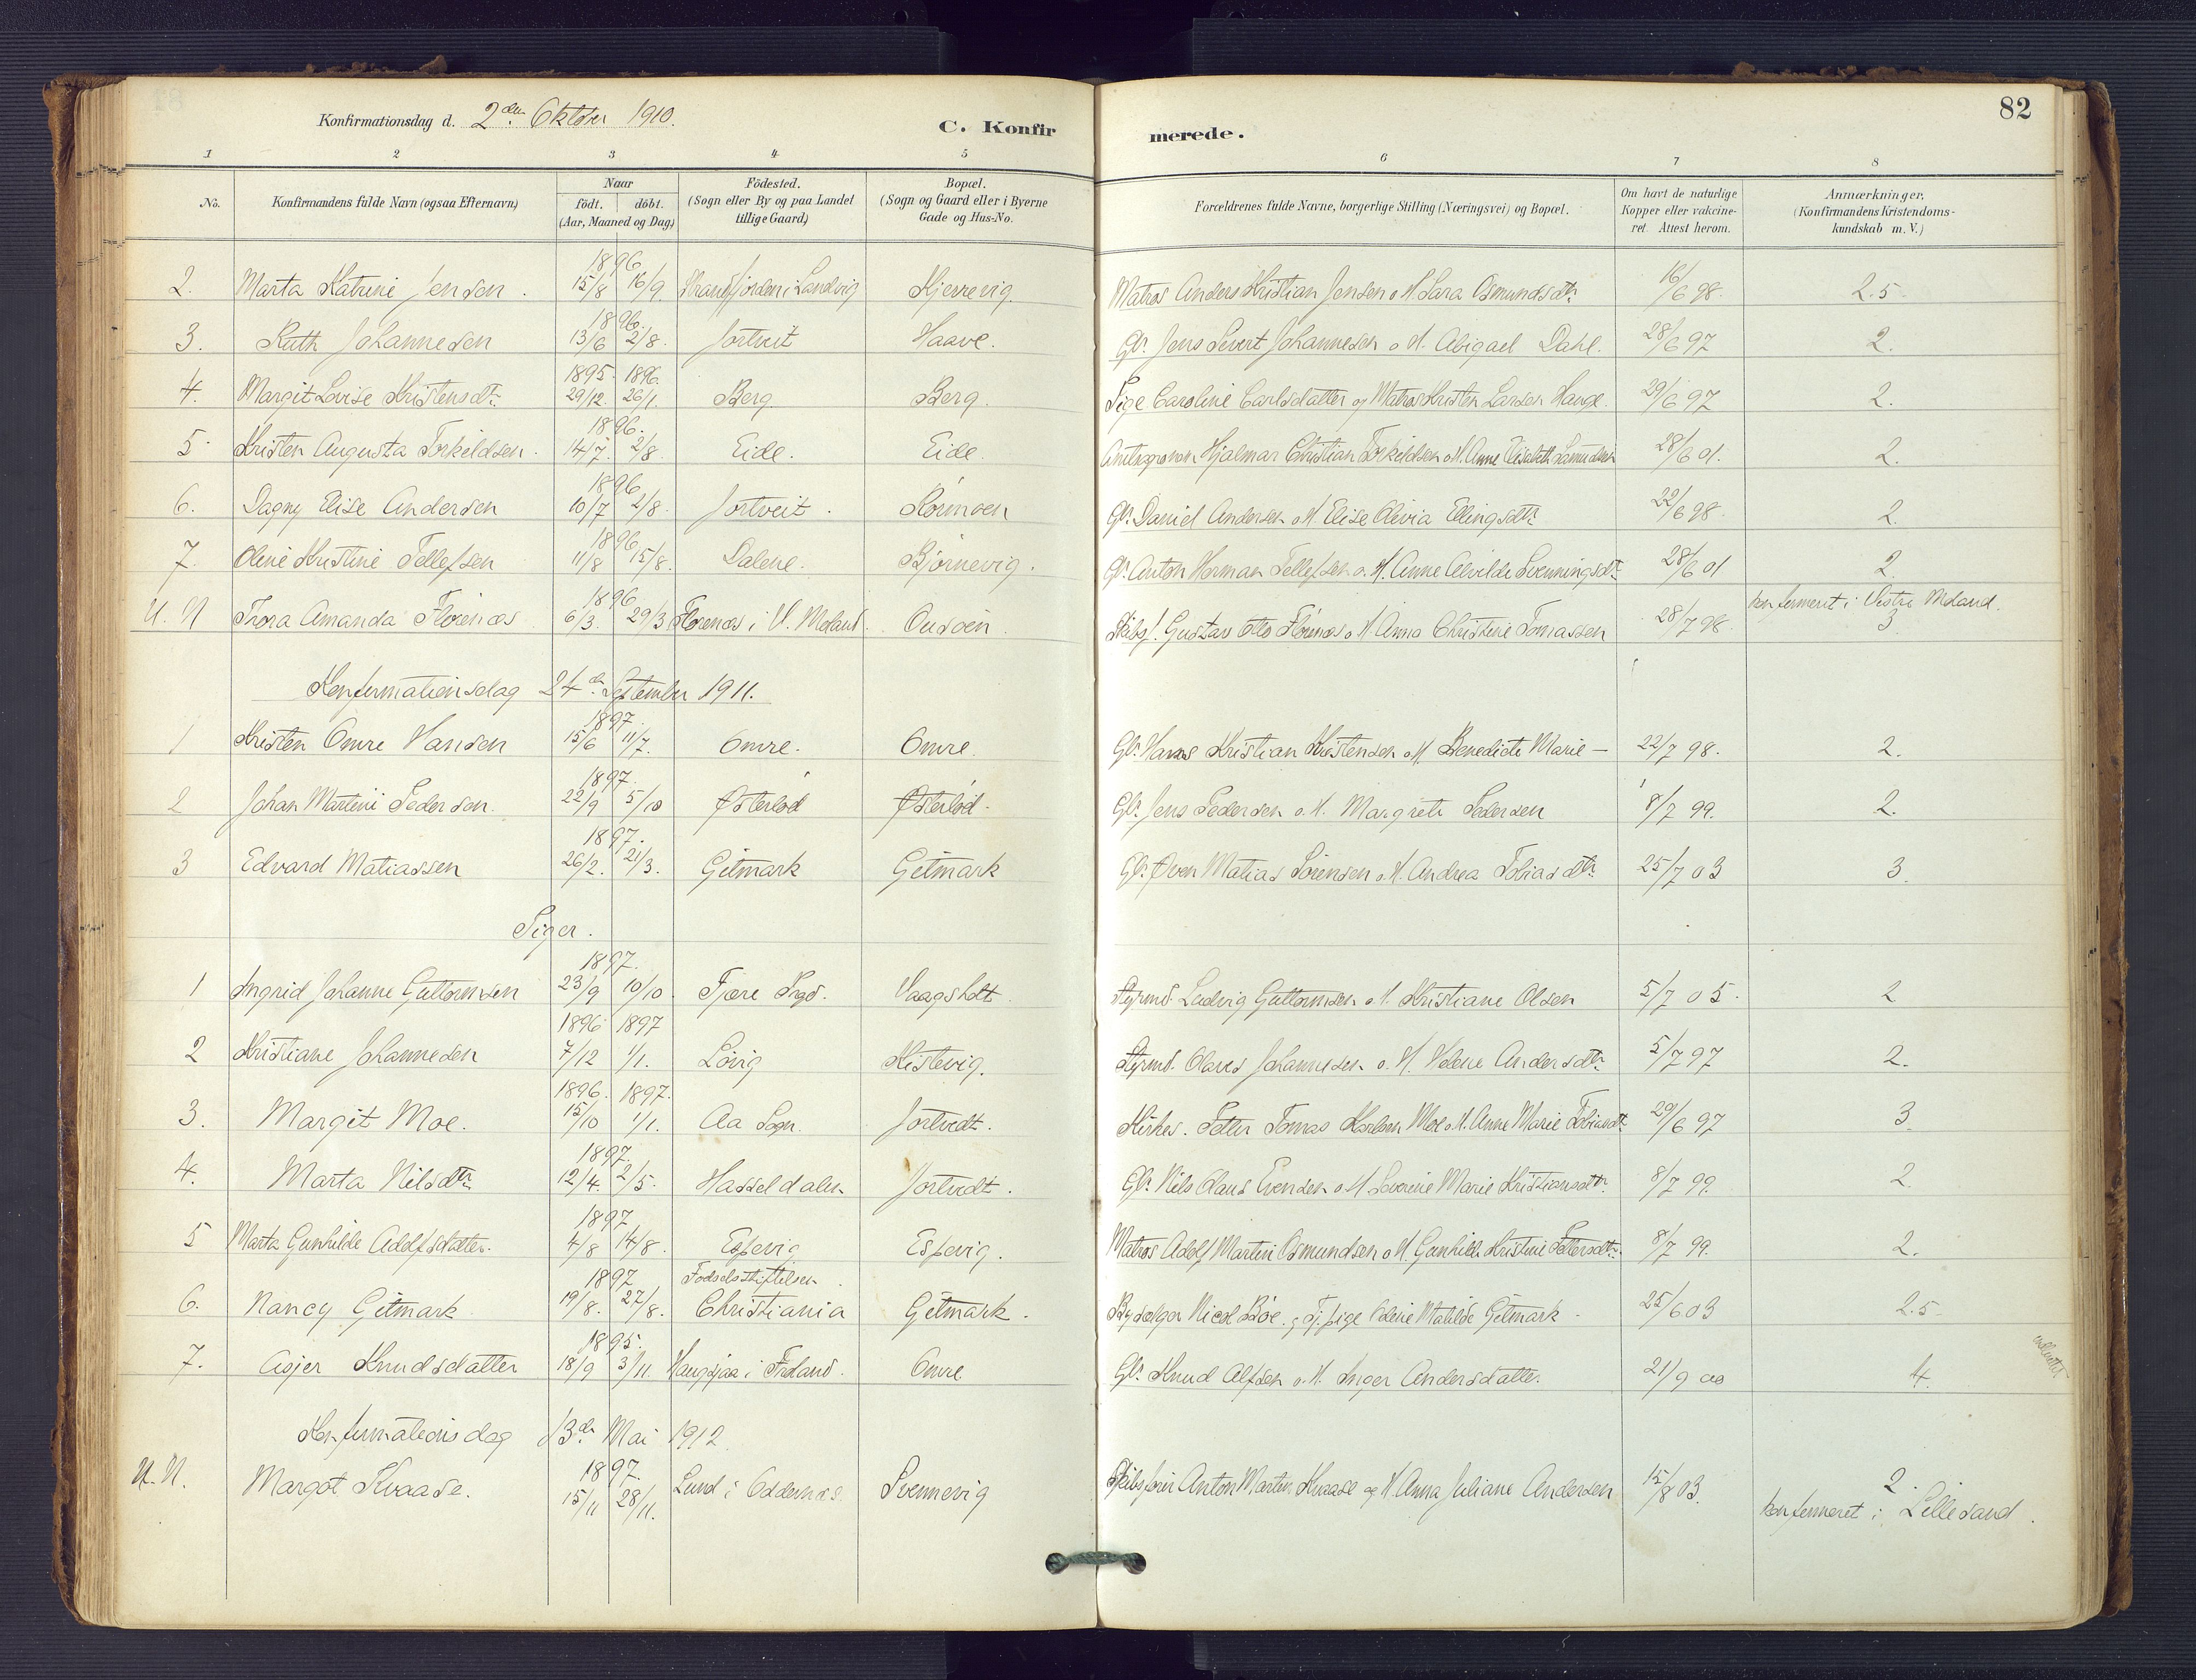 82
Konfirmationsdag d. 2den Oktober 1910.
C. Konfirmerede.
1 2 3 4 5 6 7 8
No.
Konfirmandens fulde Navn (ogsaa Efternavn)
Naar
födt. döbt.
(Aar, Maaned og Dag)
Födested.
(Sogn eller By og paa Landet
tillige Gaard)
Bopæl.
(Sogn og Gaard eller i Byerne
Gade og Hus-No.
Forældrenes fulde Navne, borgerlige Stilling (Næringsvei) og Bopæl.
Om havt de naturlige
Kopper eller vakcine-
ret. Attest herom.
Anmærkninger.
(Konfirmandens Kristendoms-
kundskab m. V.)
1896
2. Marta Katrine Jensen. 15/8 16/9. i Landvig Kjerrevig. Matros Anders Kristian Jensen o H. Sara Osmundsdtr 16/6 98. 2.5
1896.
3. Ruth Johannesen 13/6 2/8. Jortveit Haave. Gbr. Jens Severt Johannesen o H. Abigael Dahl. 28/6 97 2.
1895. 1896.
4. Margit Lovise Kristensdtr. 29/12. 26/1. Berg. Berg. Pige Caroline Carlsdatter og Matros Kristen Larsen Hauge. 29/6 97 2.
1896.
5. Kristen Augusta Torkildsen. 14/7. 2/8. Eide. Eide. Hjalmar Christian Torkildsen o H. Anne Elisabeth 28/6 01. 2.
1896
6. Dagny Elise Andersen 10/7 2/8. Jortveit. Gbr. Daniel Andersen o H. Elise Olivia Ellingsdtr. 22/6 98. 2.
1896
7. Olene Kristine Tellefsen 11/8 15/8. Dalene. Bjørnevig. Gbr. Anton Herman Tellefsen o. H. Anne Alvilde Svenningsdtr. 28/6 01 2.
1896 konfirmeret i Vestre Moland.
U. N Thora Amanda Florenæs 6/3. 29/3 Florenæs i V. Moland. Skibsf. Gustav Otto Florenæs o H. Anna Christine Tomassen 28/7 98. 3
Konfirmationsdag 24de September 1911.
1897.
1 Kristen Omre Hansen 15/6 11/7. Omre. Omre. Gbr. Hans Kristian Kristensen o H. Benedicte Marie — 22/7 98. 2.
1897.
2 Johan Martini Pedersen. 22/9 5/10 Østerlod Østerlod. Gbr. Jens Pedersen o. H. Margrete Pedersen 8/7 99. 2.
1897.
3 Edvard Matiassen 26/2. 21/3. Gitmark Gitmark Gbr. Matias Sørensen o. H. Andrea Tobiasdtr. 25/7 03 3.
Piger.
1897.
1 Ingrid Johanne Guttormsen 23/9 10/10. Fjære Vaagsholt Styrmd. Ludvig Guttormsen o. H. Kristiane Olsen 5/7 05. 2
1896 1897
2 Kristiane Johannesen 7/12 1/1. Løvig Kistevig. Styrmd. Olaves Johannesen o. H. Helene Andersdtr. 5/7 97 2.
1896. 1897.
3. Margit Moe. 15/10 1/1. Aa Sogn. Jortvedt. Petter Tomas Karlsen Moe o H. Anne Marie Tobiasdtr. 29/6 97 3.
1897.
4. Marta Nilsdtr. 12/4. 2/5. Hasseldalen Jortvedt. Gbr. Nils Olaus Evensen o. H. Severine Marie Kristiansdtr. 8/7 99. 2.
1897
5 Marta Gunhilde Adolfsdatter. 4/8 14/8. Espevig Espevig. Matros Adolf Martin Osmundsen o H. Gunhilde Kristine Pettersdtr. 8/7 99. 2.
1897 Fødselsstiftelsen
6. Nancy Gitmark 19/8. 27/8. Christiania Gitmark. Nicol Bøe. og pige Olene Matilde Gitmark. 25/6 03 2.5
1895.
7. Asjer Knudsdatter 18/9 3/11. i Froland. Omre Gbr. Knud Alfsen o. H. Inger Andersdatter. 21/9 00 4.
Konfirmationsdag 13de Mai 1912
1897.
U. N. Margot Kvaase. 15/11 28/11. Lund i Oddernæs. Svennevig Skibsfører Anton Martin Kvaase og H. Anna Juliane Andersen 15/8 03. 2.
konfirmeret i Lillesand.